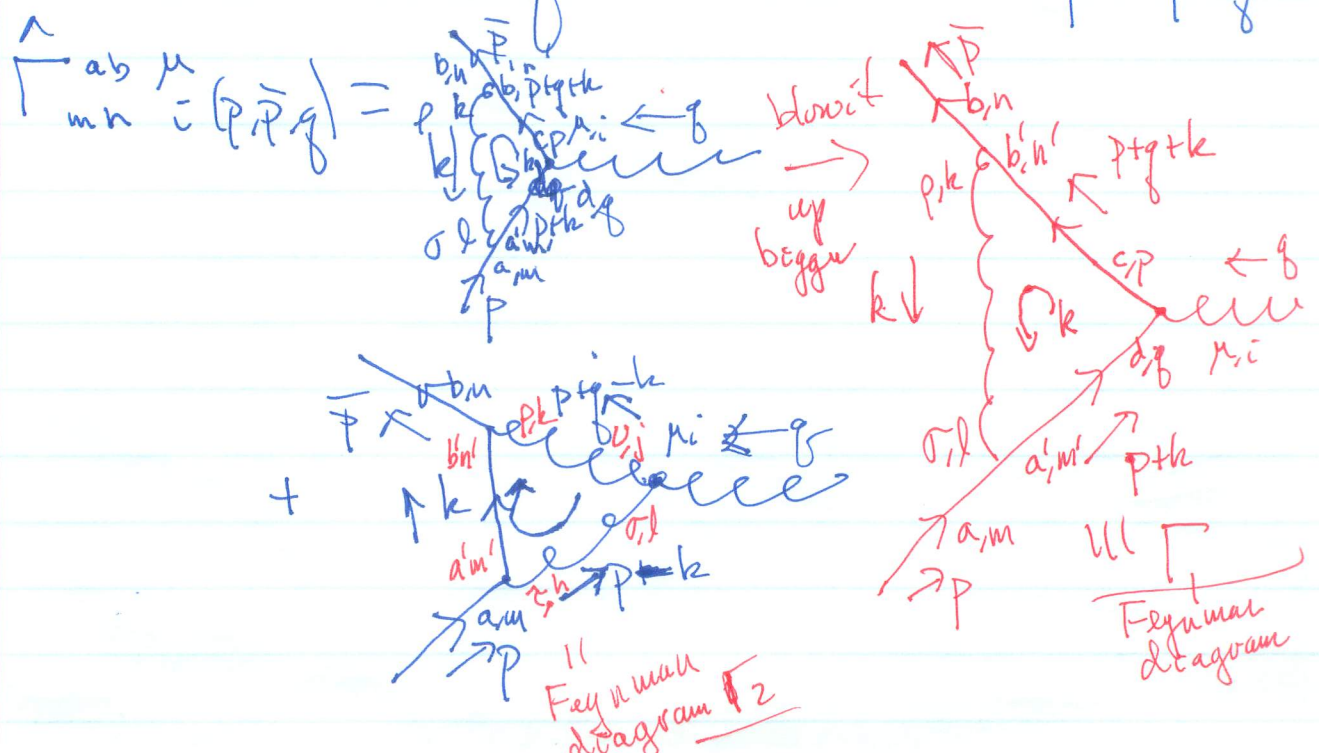 Γ̂ ab μ mn i (p, p̄, q) =
p̄
b,n
b, p+q+k
ρ k
c,p μ,i ← q
k ↓
d,q
p+k
σ l
a'm'
a,m
p
blow it
→
up
bigger
p̄
b,n
b',n'
p+q+k
ρ,k
c,p
← q
k ↓
k
d,q
μ,i
σ,l
a',m'
p+k
a,m
p
||| Γ
Feynman
diagram
+
p̄
b,n
ρ,k
p+q-k
b'n'
υ,j
μ i ← q
↑ k
σ,l
a'm'
τ,h
p - k
a,m
p
||
Feynman
diagram Γ2